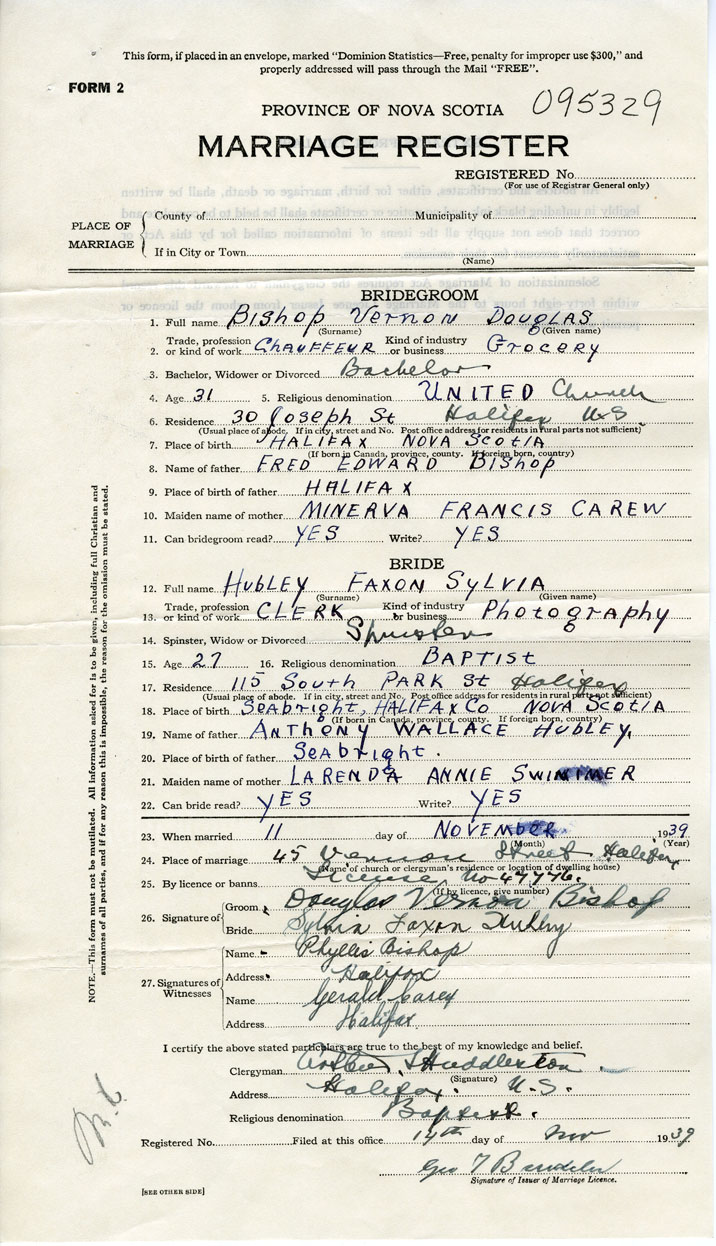 This form, if placed in an envelope, marked "Dominion Statistics—Free, penalty for improper use $300," and
properly addressed will pass through the Mail "FREE".
FORM 2
PROVINCE OF NOVA SCOTIA 095329
MARRIAGE REGISTER
REGISTERED No.
(For use of Registrar General only)
PLACE OF MARRIAGE
County of Municipality of
If in City or Town
(Name)
BRIDEGROOM
1. Full name Bishop Vernon Douglas
(Surname) (Given name)
2. Trade, profession or kind of work Chauffeur Kind of industry or business Grocery
3. Bachelor, Widower or Divorced Bachelor
4. Age 31 5. Religious denomination United Church
6. Residence 30 Joseph St Halifax N.S
(Usual place of abode. If in city, street and No. Post office address for residents in rural parts not sufficient)
7. Place of birth HALIFAX NOVA SCOTIA
(If born in Canada, province, county. If foreign born, country)
8. Name of father FRED EDWARD BISHOP
9. Place of birth of father HALIFAX
10. Maiden name of mother MINERVA FRANCIS CAREW
11. Can bridegroom read? YES Write? YES
BRIDE
12. Full name HUBLEY FAXON SYLVIA
(Surname) (Given name)
13. Trade, profession or kind of work CLERK Kind of industry or business Photography
14. Spinster, Widow or Divorced Spinster
15. Age 27 16. Religious denomination BAPTIST
17. Residence 115 South PARK St Halifax
(Usual place of abode. If in city, street and No. Post office address for residents in rural parts not sufficient)
18. Place of birth Seabright, HALIFAX Co NOVA SCOTIA
(If born in Canada, province, county. If foreign born, country)
19. Name of father ANTHONY WALLACE HUBLEY,
20. Place of birth of father Seabright.
21. Maiden name of mother LARENDA ANNIE
22. Can bride read? YES Write? YES
23. When married 11 day of NOVEMBER 1939
(Month) (Year)
24. Place of marriage 45 Vernon Street Halifax
(Name of church or clergyman's residence or location of dwelling house)
25. By licence or banns License No
(If by licence, give number)
26. Signature of
Groom Douglas Vernon Bishop
Bride Sylvia Faxon Hubley
27. Signatures of Witnesses
Name Phyllis Bishop
Address Halifax
Name Gerald Carey
Address Halifax
I certify the above stated particulars are true to the best of my knowledge and belief.
Clergyman Huddleston
(Signature)
Address Halifax, N.S.
Religious denomination Baptist.
Registered No. Filed at this office 14th day of Nov 1939
Geo T
Signature of Issuer of Marriage Licence.
[SEE OTHER SIDE]
NOTE.—This form must not be mutilated. All Information asked for is to be given, including full Christian and
surnames of all parties, and if for any reason this is impossible, the reason for the omission must be stated.